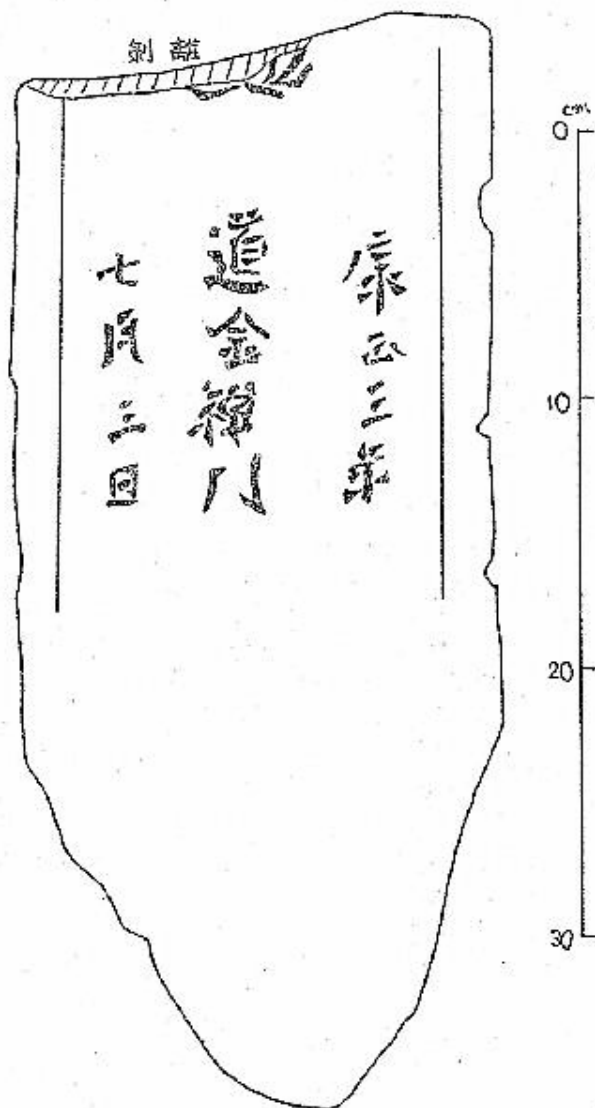 剝離
康正三年
道金禅門
七月二日
cm
0
10
20
30